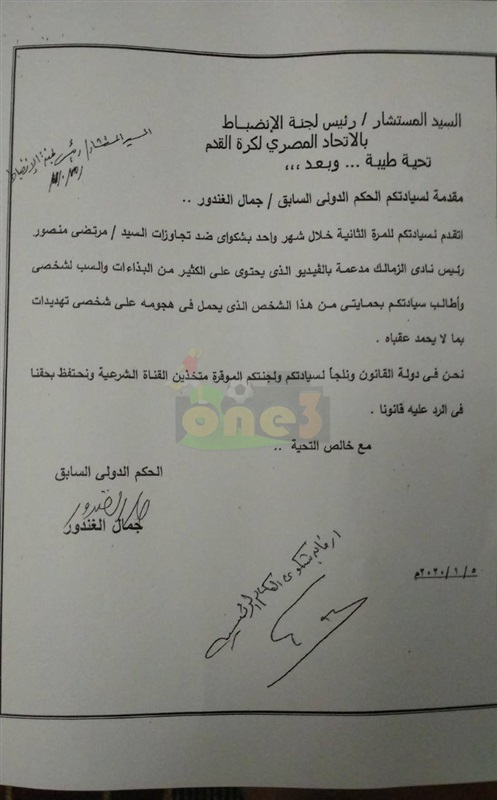 السيد المستشار / رئيس لجنة الإنضباط
بالاتحاد المصري لكرة القدم
تحية طيبة ... وبعد ,,,
السيد المستشار / رئيس لجنة الإنضباط
مقدمة لسيادتكم الحكم الدولى السابق / جمال الغندور ..
اتقدم لسيادتكم للمرة الثانية خلال شهر واحد بشكواى ضد تجاوزات السيد / مرتضى منصور
رئيس نادى الزمالك مدعمة بالفيديو الذى يحتوى على الكثير من البذاءات والسب لشخصى
وأطالب سيادتكم بحمايتى من هذا الشخص الذى يحمل فى هجومه على شخصى تهديدات
بما لا يحمد عقباه .
نحن فى دولة القانون ونلجأ لسيادتكم ولجنتكم الموقرة متخذين القناة الشرعية ونحتفظ بحقنا
فى الرد عليه قانونا .
one3
مع خالص التحية ..
الحكم الدولى السابق
جمال الغندور
٢٠٢٠/١/٥م